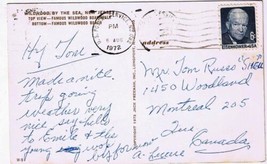 WILDWOOD BY THE SEA, NEW JERSEY
TOP VIEW - FAMOUS WILDWOOD BOARDWALK
BOTTOM - FAMOUS WILDWOOD BEACH
1972
address
EISENHOWER · USA
Hy Tom
Made a nice
trip going
weather very
nice say hello
to Emile & the
young
Mr. Tom Russo
1450 Woodland
Montreal 205
Que
Canada